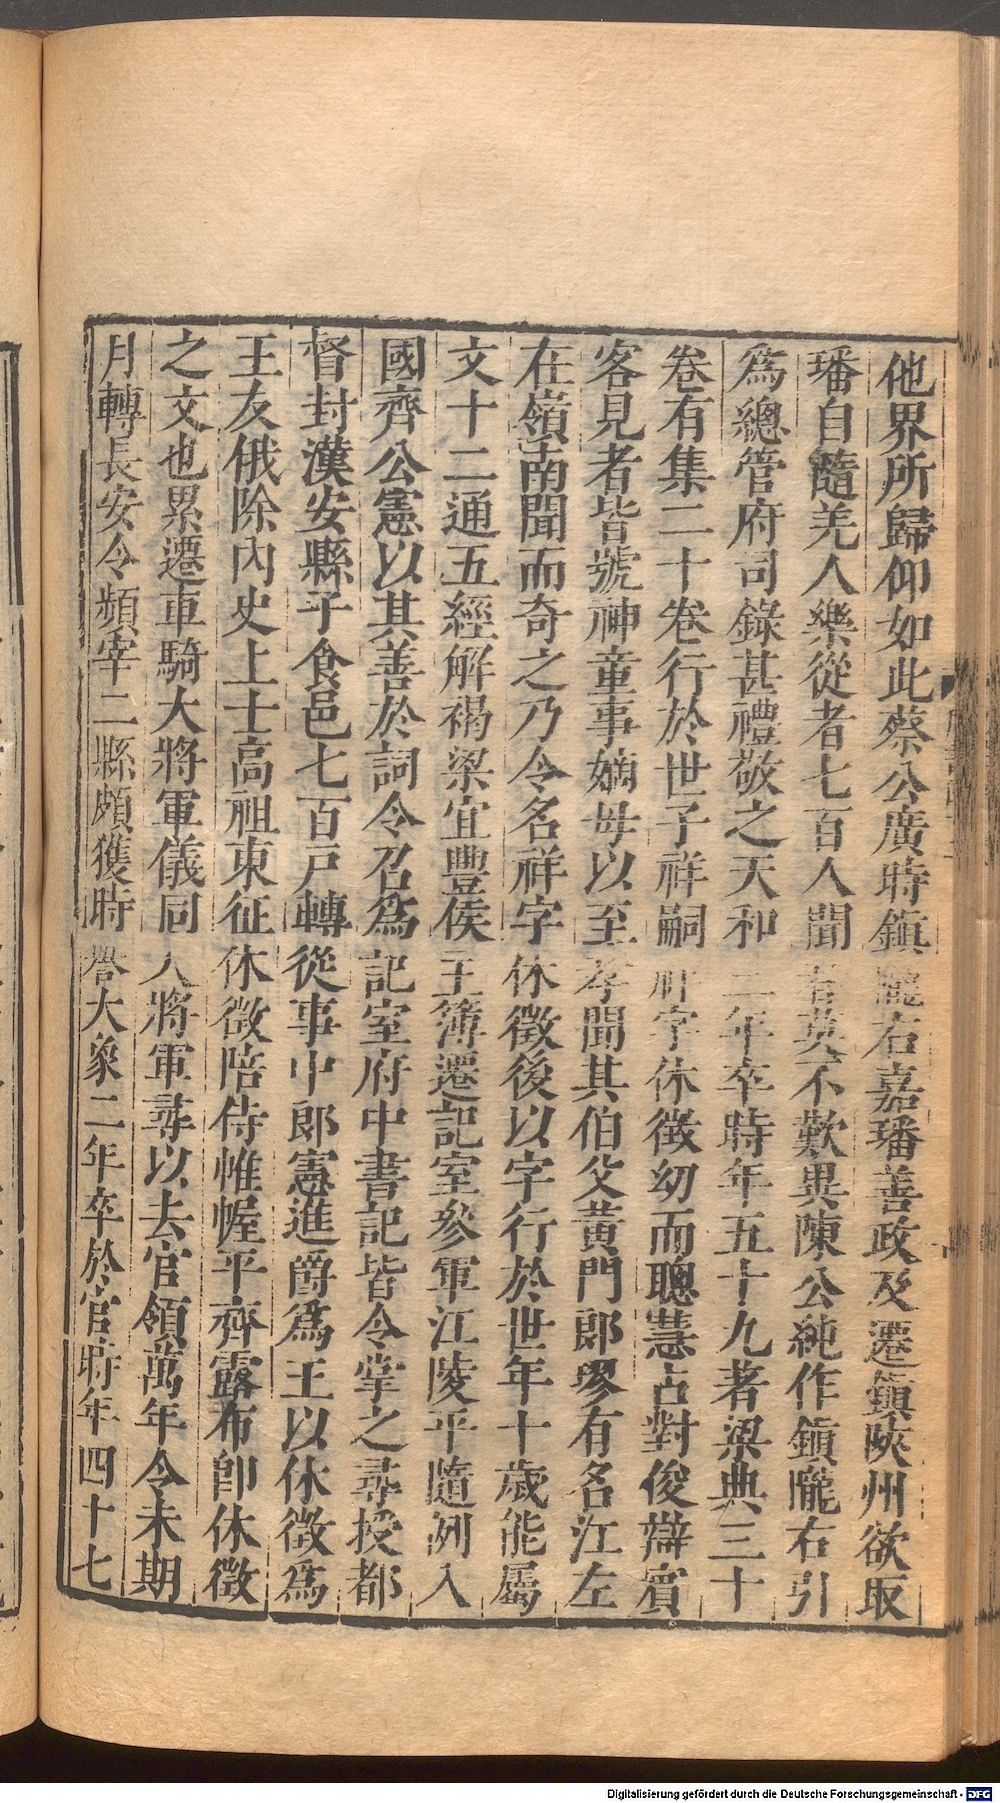 他界所歸仰如此蔡公廣時鎮隴右嘉璠善政及遷鎮陝州欲取
璠自隨羌人樂從者七百人聞者莫不歎異陳公純作鎮隴右引
爲總管府司錄甚禮敬之天和二年卒時年五十九著梁典三十
卷有集二十卷行於世子祥嗣祥字休徵幼而聰慧占對俊辯賓
客見者皆號神童事嫡母以至孝聞其伯父黄門郎璆有名江左
在嶺南聞而奇之乃令名祥字休徵後以字行於世年十歲能屬
文十二通五經解褐梁宜豐侯王簿遷記室參軍江陵平隨列入
國齊公憲以其善於詞令召爲記室府中書記皆令掌之尋授都
督封漢安縣子食邑七百戸轉從事中郎憲進爵爲王以休徵爲
王友俄除内史上士高祖東征休徵陪侍帷幄平齊露布卽休徵
之文也累遷車騎大將軍儀同大將軍尋以去官領萬年令未期
月轉長安令頻宰二縣頗獲時譽大象二年卒於官時年四十七
Digitalisierung gefördert durch die Deutsche Forschungsgemeinschaft - DFG